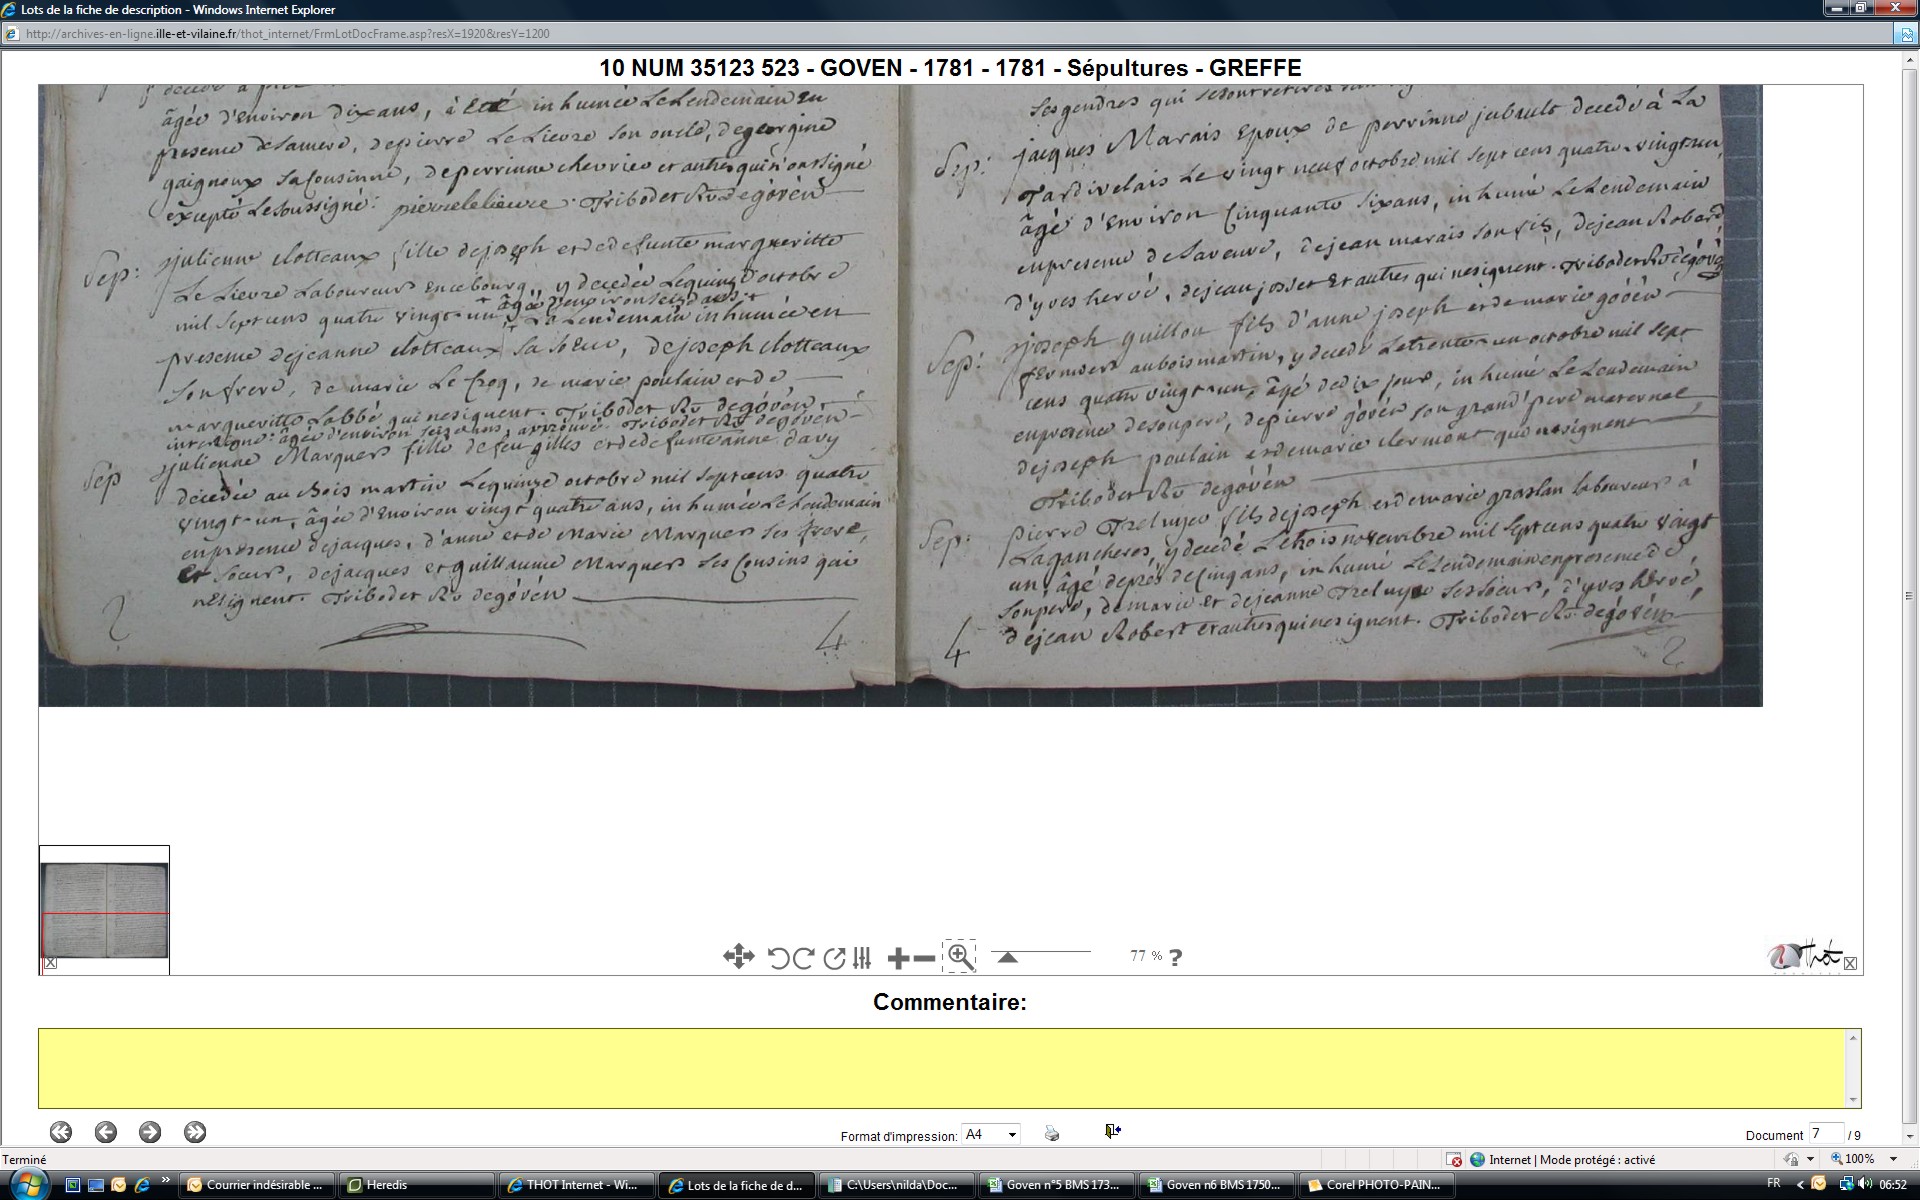 Lots de la fiche de description - Windows Internet Explorer
http://archives-en-ligne.ille-et-vilaine.fr/thot_internet/FrmLotDocFrame.asp?resX=1920&resY=1200
10 NUM 35123 523 - GOVEN - 1781 - 1781 - Sépultures - GREFFE
âgée d'environ dix ans, à été inhumée Le Lendemain en
presence de sa mere, de pierre Le Lievre son oncle, de georgine
gaignoux sa Cousinne, de perrinne chevrier et autres qui n'ont signé
excepté Le soussigné: pierre le lieuvre. Tribodet Rr. de govën
Sep: julienne clotteaux fille de joseph et de defunte margueritte
Le Lievre Laboureurs en ce bourg, y decedée Le quinze octobre
mil sept cens quatre vingt-un + âgée d'environ seize ans +
Le Lendemain inhumée en
presence de jeanne clotteaux sa soeur, de joseph clotteaux
son frere, de marie Le Croq, de marie poulain et de
margueritte Labbé qui ne signent. Tribodet Rr. de govën
interligne: âgée d'environ seize ans, approuvé. Tribodet Rr. de govën
Sép julienne Marquer fille de feu gilles et de defunte anne davy
decedée au Bois martin Le quinze octobre mil sept cens quatre
vingt-un, âgée d'environ vingt quatre ans, inhumée Le Lendemain
en presence de jacques, d'anne et de Marie Marquer ses frere,
et soeurs, de jacques et guillaume Marquer ses Cousins qui
ne signent. Tribodet Rr. de govën
2
4
ses gendres qui
Sep: jacques Marais Epoux de perrinne jubault decedé à La
Tardivelais Le vingt neuf octobre mil sept cens quatre-vingt-un
âgé d'environ Cinquante six ans, inhumé Le Lendemain
en presence de sa veuve, de jean marais son fils, de jean Robert
d'yves hervé, de jean josset et autres qui ne signent. Tribodet Rr. de govën
Sep: joseph guillou fils d'anne joseph et de marie govën
fermiers au bois martin, y decedé Le trente-un octobre mil sept
cens quatre vingt-un, âgé de dix jours, inhumé Le Lendemain
en presence de son pere, de pierre govën son grand'pere maternel,
de joseph poulain et de marie clermont qui ne signent
Tribodet Rr. de govën
Sep: pierre Treluyer fils de joseph et de marie graslan laboureurs à
La gancherès, y decedé Le trois novembre mil sept cens quatre vingt
un, âgé de près de Cinq ans, inhumé Le Lendemain en presence de
son pere, de marie et de jeanne Treluyer ses soeurs, d'yves hervé,
de jean Robert et autres qui ne signent. Tribodet Rr. de govën
4
2
77 % ?
Thot
Commentaire:
Format d'impression: A4
Document 7 / 9
Terminé
Internet | Mode protégé : activé
100%
Courrier indésirable ...
Heredis
THOT Internet - Wi...
Lots de la fiche de d...
C:\Users\nilda\Doc...
Goven n°5 BMS 173...
Goven n6 BMS 1750...
Corel PHOTO-PAIN...
FR
06:52